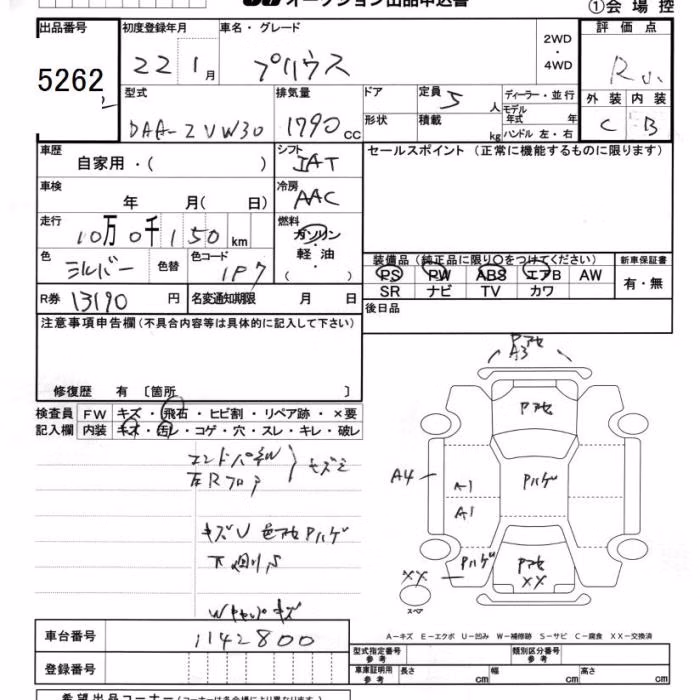 オークション出品申込書
①会場控
出品番号 初度登録年月 車名・グレード 評価点
5262 22 1月 プリウス 2WD・4WD R
型式 排気量 ドア 定員 5人 ディーラー・並行 外装 内装
DAA-ZVW30 1790cc 形状 積載 kg モデル年式 年 C B
ハンドル 左・右
車歴 自家用・( ) シフト IAT セールスポイント (正常に機能するものに限ります)
車検 年 月( 日) 冷房 AAC
走行 10万0千150km 燃料 ガソリン・軽油( )
色 シルバー 色替 色コード 1F7
装備品 (純正品に限り○をつけてください) 新車保証書
PS PW ABS エアB AW 有・無
SR ナビ TV カワ
R券 13190円 名変通知期限 月 日 後日品
注意事項申告欄(不具合内容等は具体的に記入して下さい)
修復歴 有 〔箇所 〕
検査員 FW キズ・飛石・ヒビ割・リペア跡・×要
記入欄 内装 キズ・汚レ・コゲ・穴・スレ・キレ・破レ
エンドパネル
左Rフロア
キズU 色アセ Pハゲ
下廻りS
Wキャップキズ
Pアセ
A3
Pアセ
A4
A1
Pハゲ
A1
Pハゲ
Pアセ
XX
XX
スペア
A−キズ E−エクボ U−凹み W−補修跡 S−サビ C−腐食 XX−交換済
車台番号 1142800 型式指定番号 参考 類別区分番号 参考
登録番号 車庫証明用 参考 長さ cm 幅 cm 高さ cm
希望出品コーナー (コーナーは各会場により異なります)